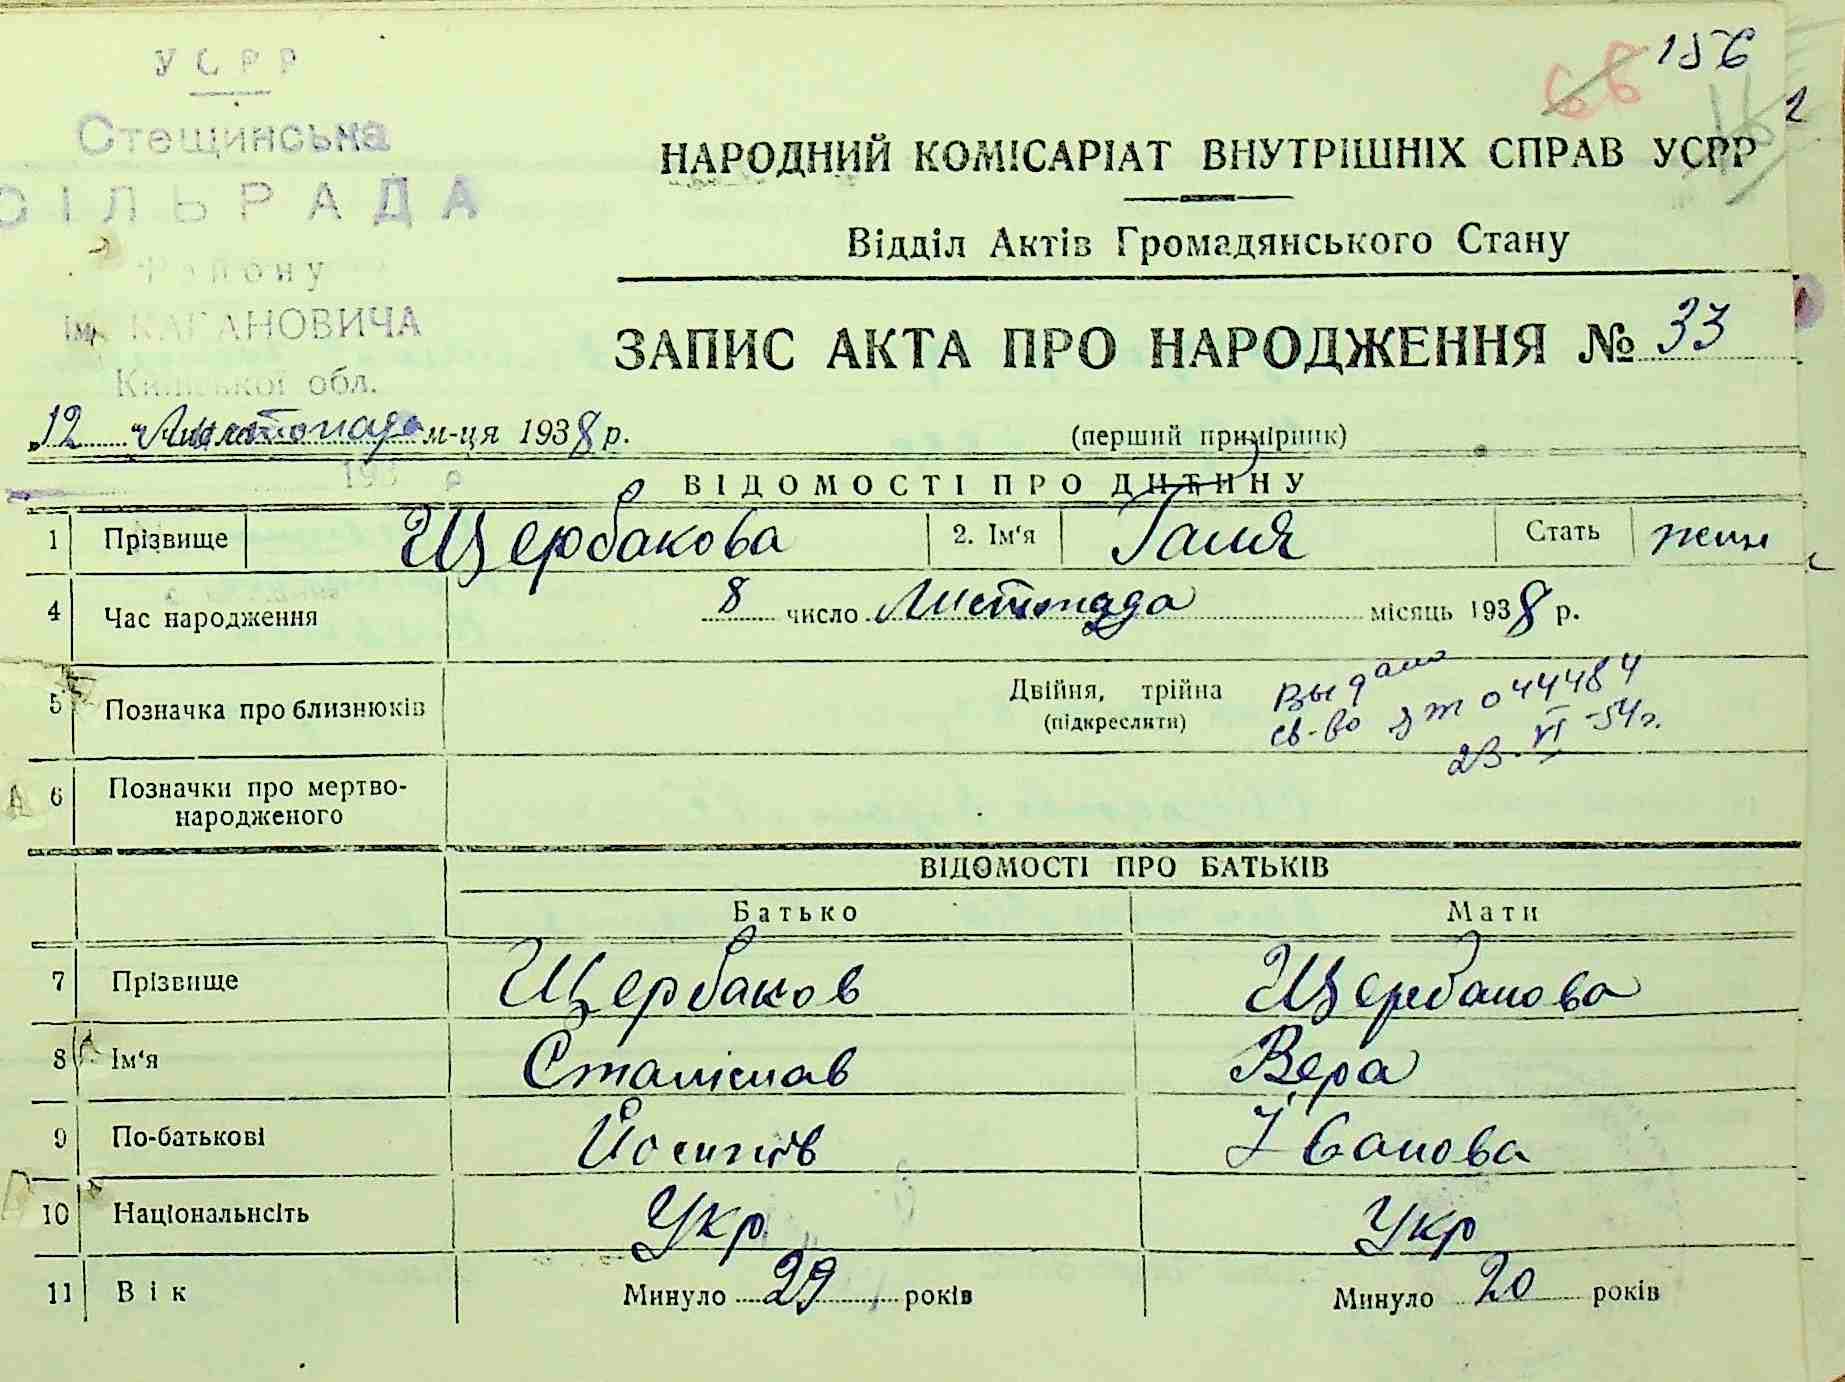 УСРР
Стещинська
СІЛЬРАДА
Району
ім. КАГАНОВИЧА
Київської обл.
66 156
НАРОДНИЙ КОМІСАРІАТ ВНУТРІШНІХ СПРАВ УСРР
Відділ Актів Громадянського Стану
ЗАПИС АКТА ПРО НАРОДЖЕННЯ № 33
„12 “ Листопада м-ця 1938 р.
(перший примірник)
193 р
ВІДОМОСТІ ПРО ДИТИНУ
1 Прізвище Щербакова 2. Ім'я Галя Стать жін
4 Час народження 8 число Листопада місяць 1938 р.
5 Позначка про близнюків Двійня, трійна
(підкреслити)
Выдано
св-во 044484
23-VI-54г.
6 Позначки про мертво-
народженого
ВІДОМОСТІ ПРО БАТЬКІВ
Батько Мати
7 Прізвище Щербаков Щербакова
8 Ім'я Станіслав Вера
9 По-батькові Йосипів Іванова
10 Національнсіть Укр Укр
11 Вік Минуло 29 років Минуло 20 років